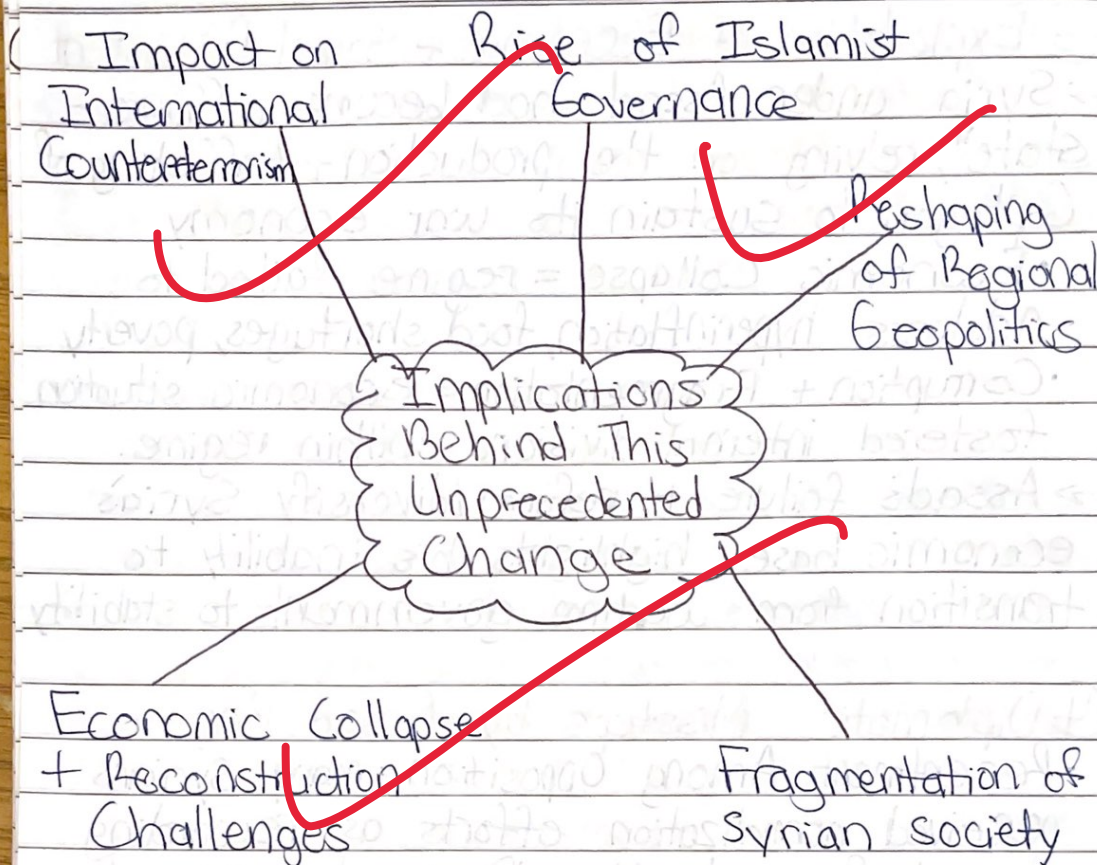 Impact on
International
Counterterrorism
Rise of Islamist
Governance
Reshaping
of Regional
Geopolitics
Implications
Behind This
Unprecedented
Change
Economic Collapse
+ Reconstruction
Challenges
Fragmentation of
Syrian society